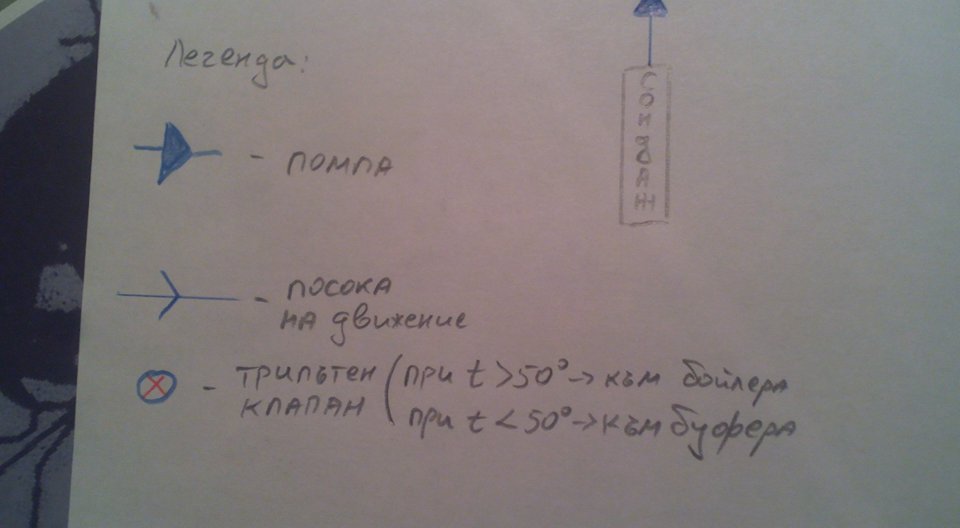 Легенда:
- ПОМПА
СОНДАЖ
- ПОСОКА
НА движение
- ТРИПЪТЕН (при t>50°→към бойлера
КЛАПАН при t<50°→към буфера